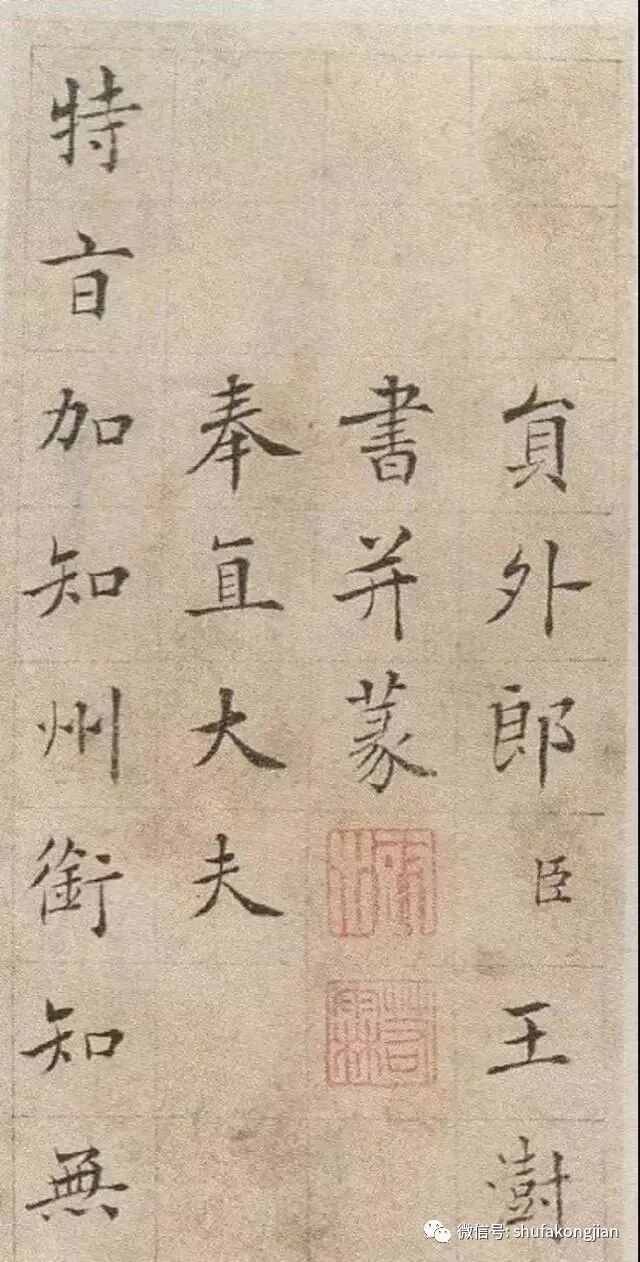 貟外郎臣王澍
書并篆
奉直大夫
特旨加知州銜知無
微信号: shufakongjian